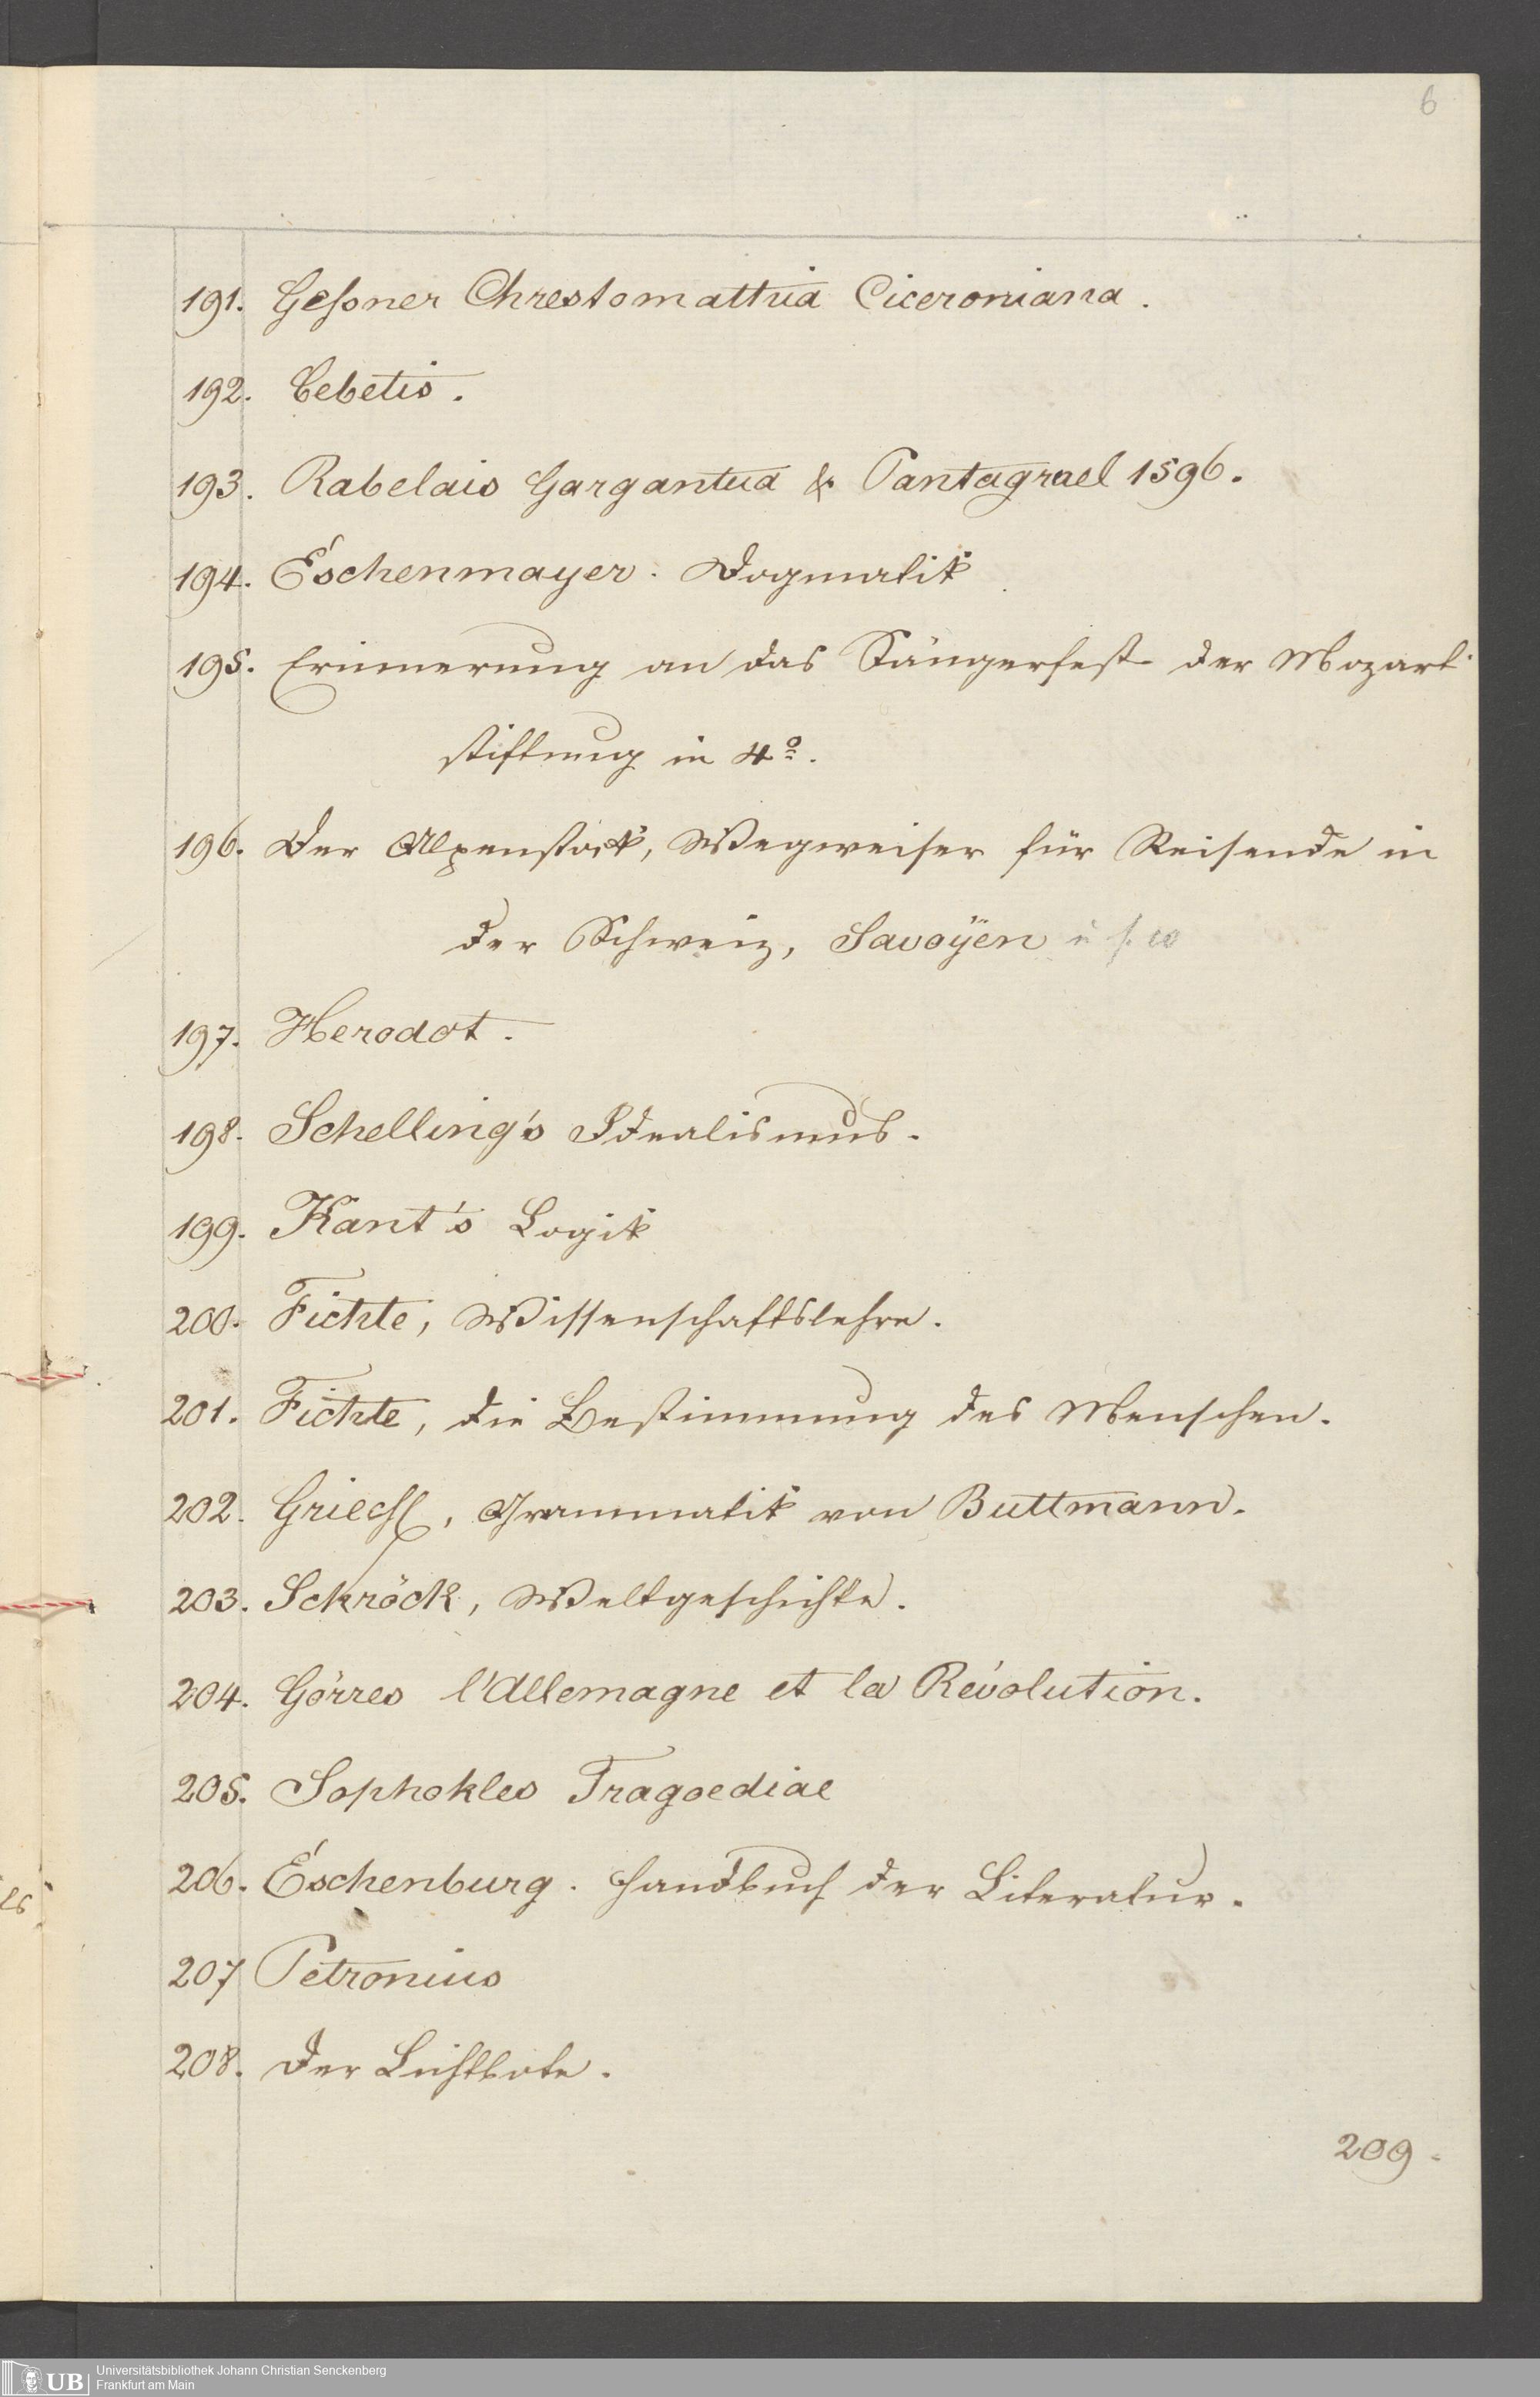 6
191. Geſsner Chrestomathia Ciceroniana.
192. Cebetis.
193. Rabelais Gargantua & Pantagrael 1596.
194. Eschenmayer. Dogmatik
195. Erinnerung an das Sängerfest der Mozart-
stiftung in 4º.
196. Der Alpenstock, Wegweiser für Reisende in
der Schweiz, Savoyen u s. w
197. Herodot.
198. Schelling's Idealismus.
199. Kant's Logik
200. Fichte, Wissenschaftslehre.
201. Fichte, die Bestimmung des Menschen.
202. Griech, Grammatik von Buttmann.
203. Schröck, Weltgeschichte.
204. Görres l'Allemagne et la Révolution.
205. Sophokles Tragoediae
206. Eschenburg. Handbuch der Literatur.
207 Petronius
208. Der Lichtbote.
209.
UB Universitätsbibliothek Johann Christian Senckenberg
Frankfurt am Main